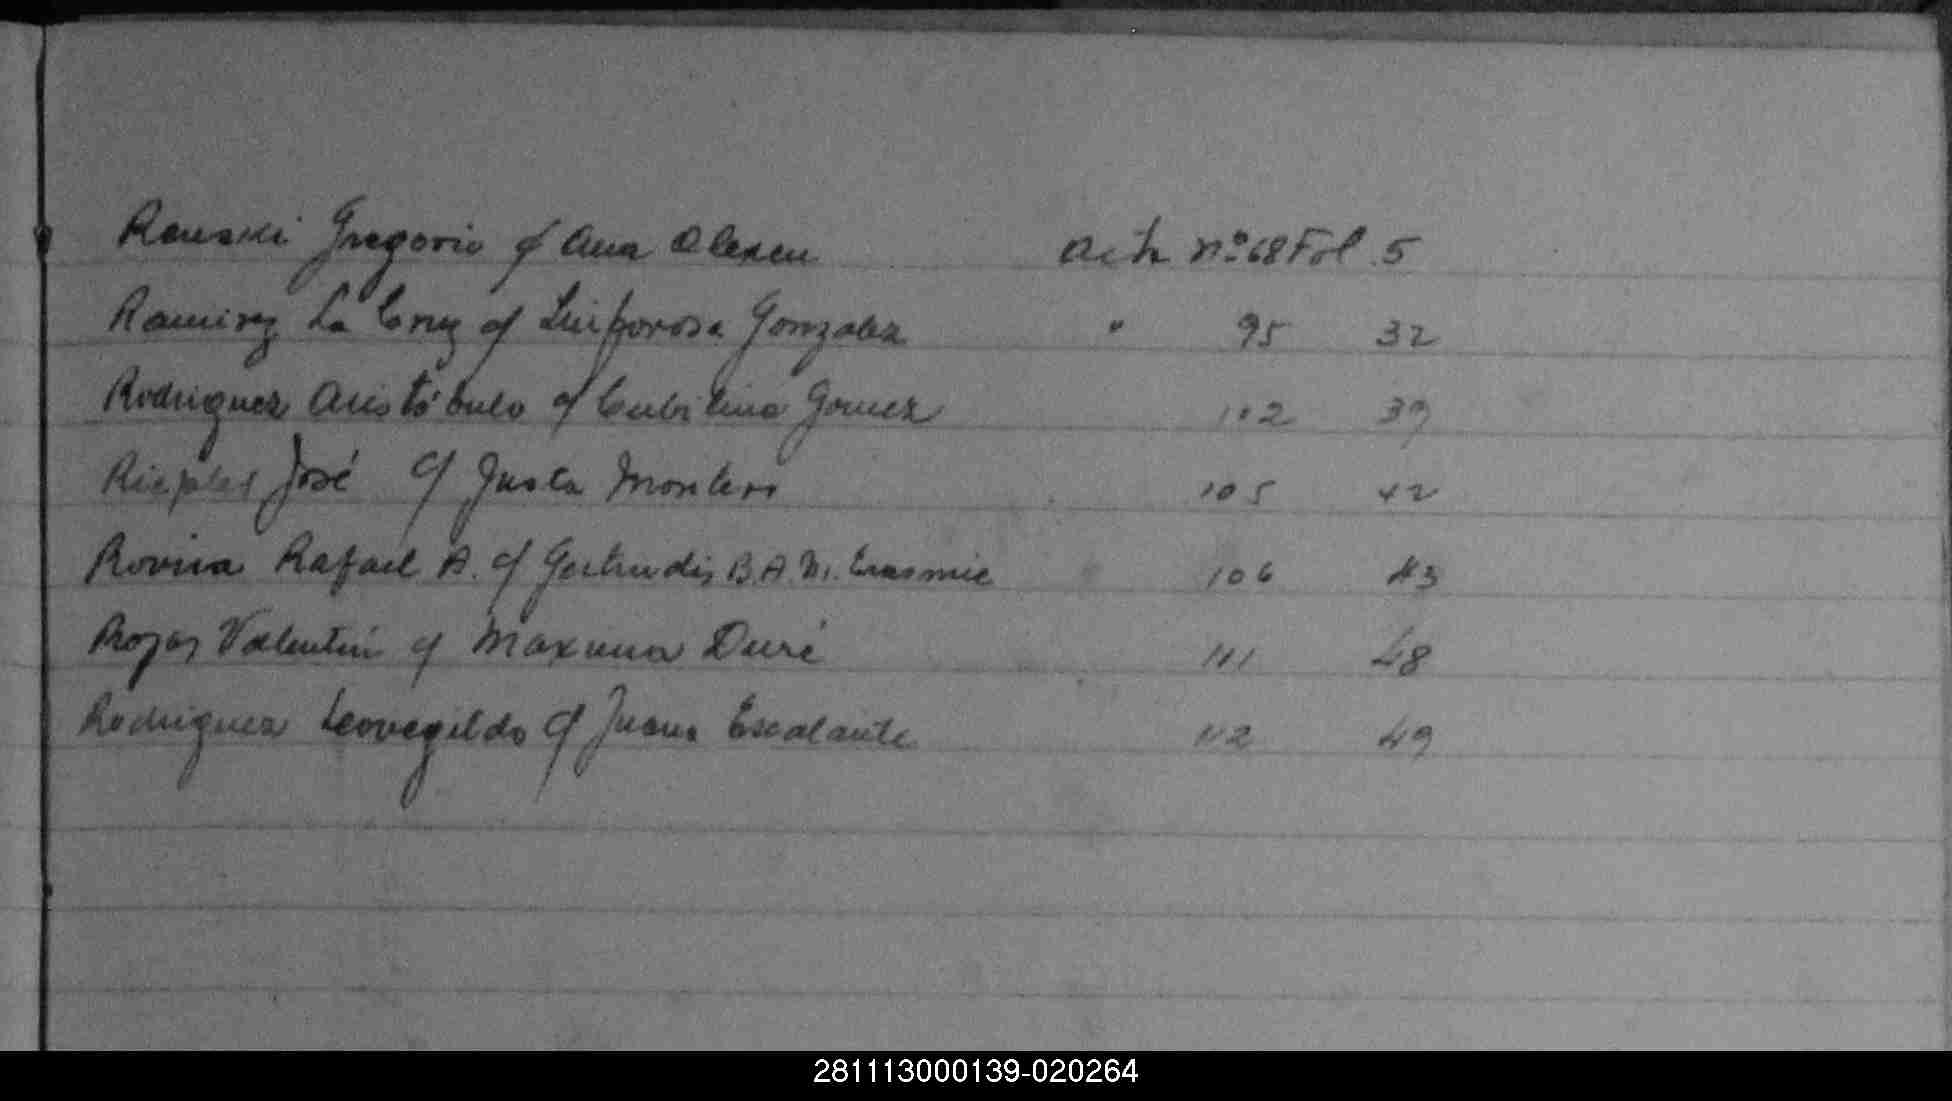 Gregorio c/ Ana Olexen Acta Nº 68 Fol. 5
Ramirez La Cruz c/ Sinforosa Gonzalez " 95 32
Rodriguez Aristóbulo c/ Gomez 102 39
José c/ Justa Montero 105 42
Rovira Rafael A. c/ Gertrudis B. A. M. Erasmie 106 43
Rojas Valentín c/ Maxima Duré 111 48
Rodriguez Leovegildo c/ Juana Escalante 112 49
281113000139-020264